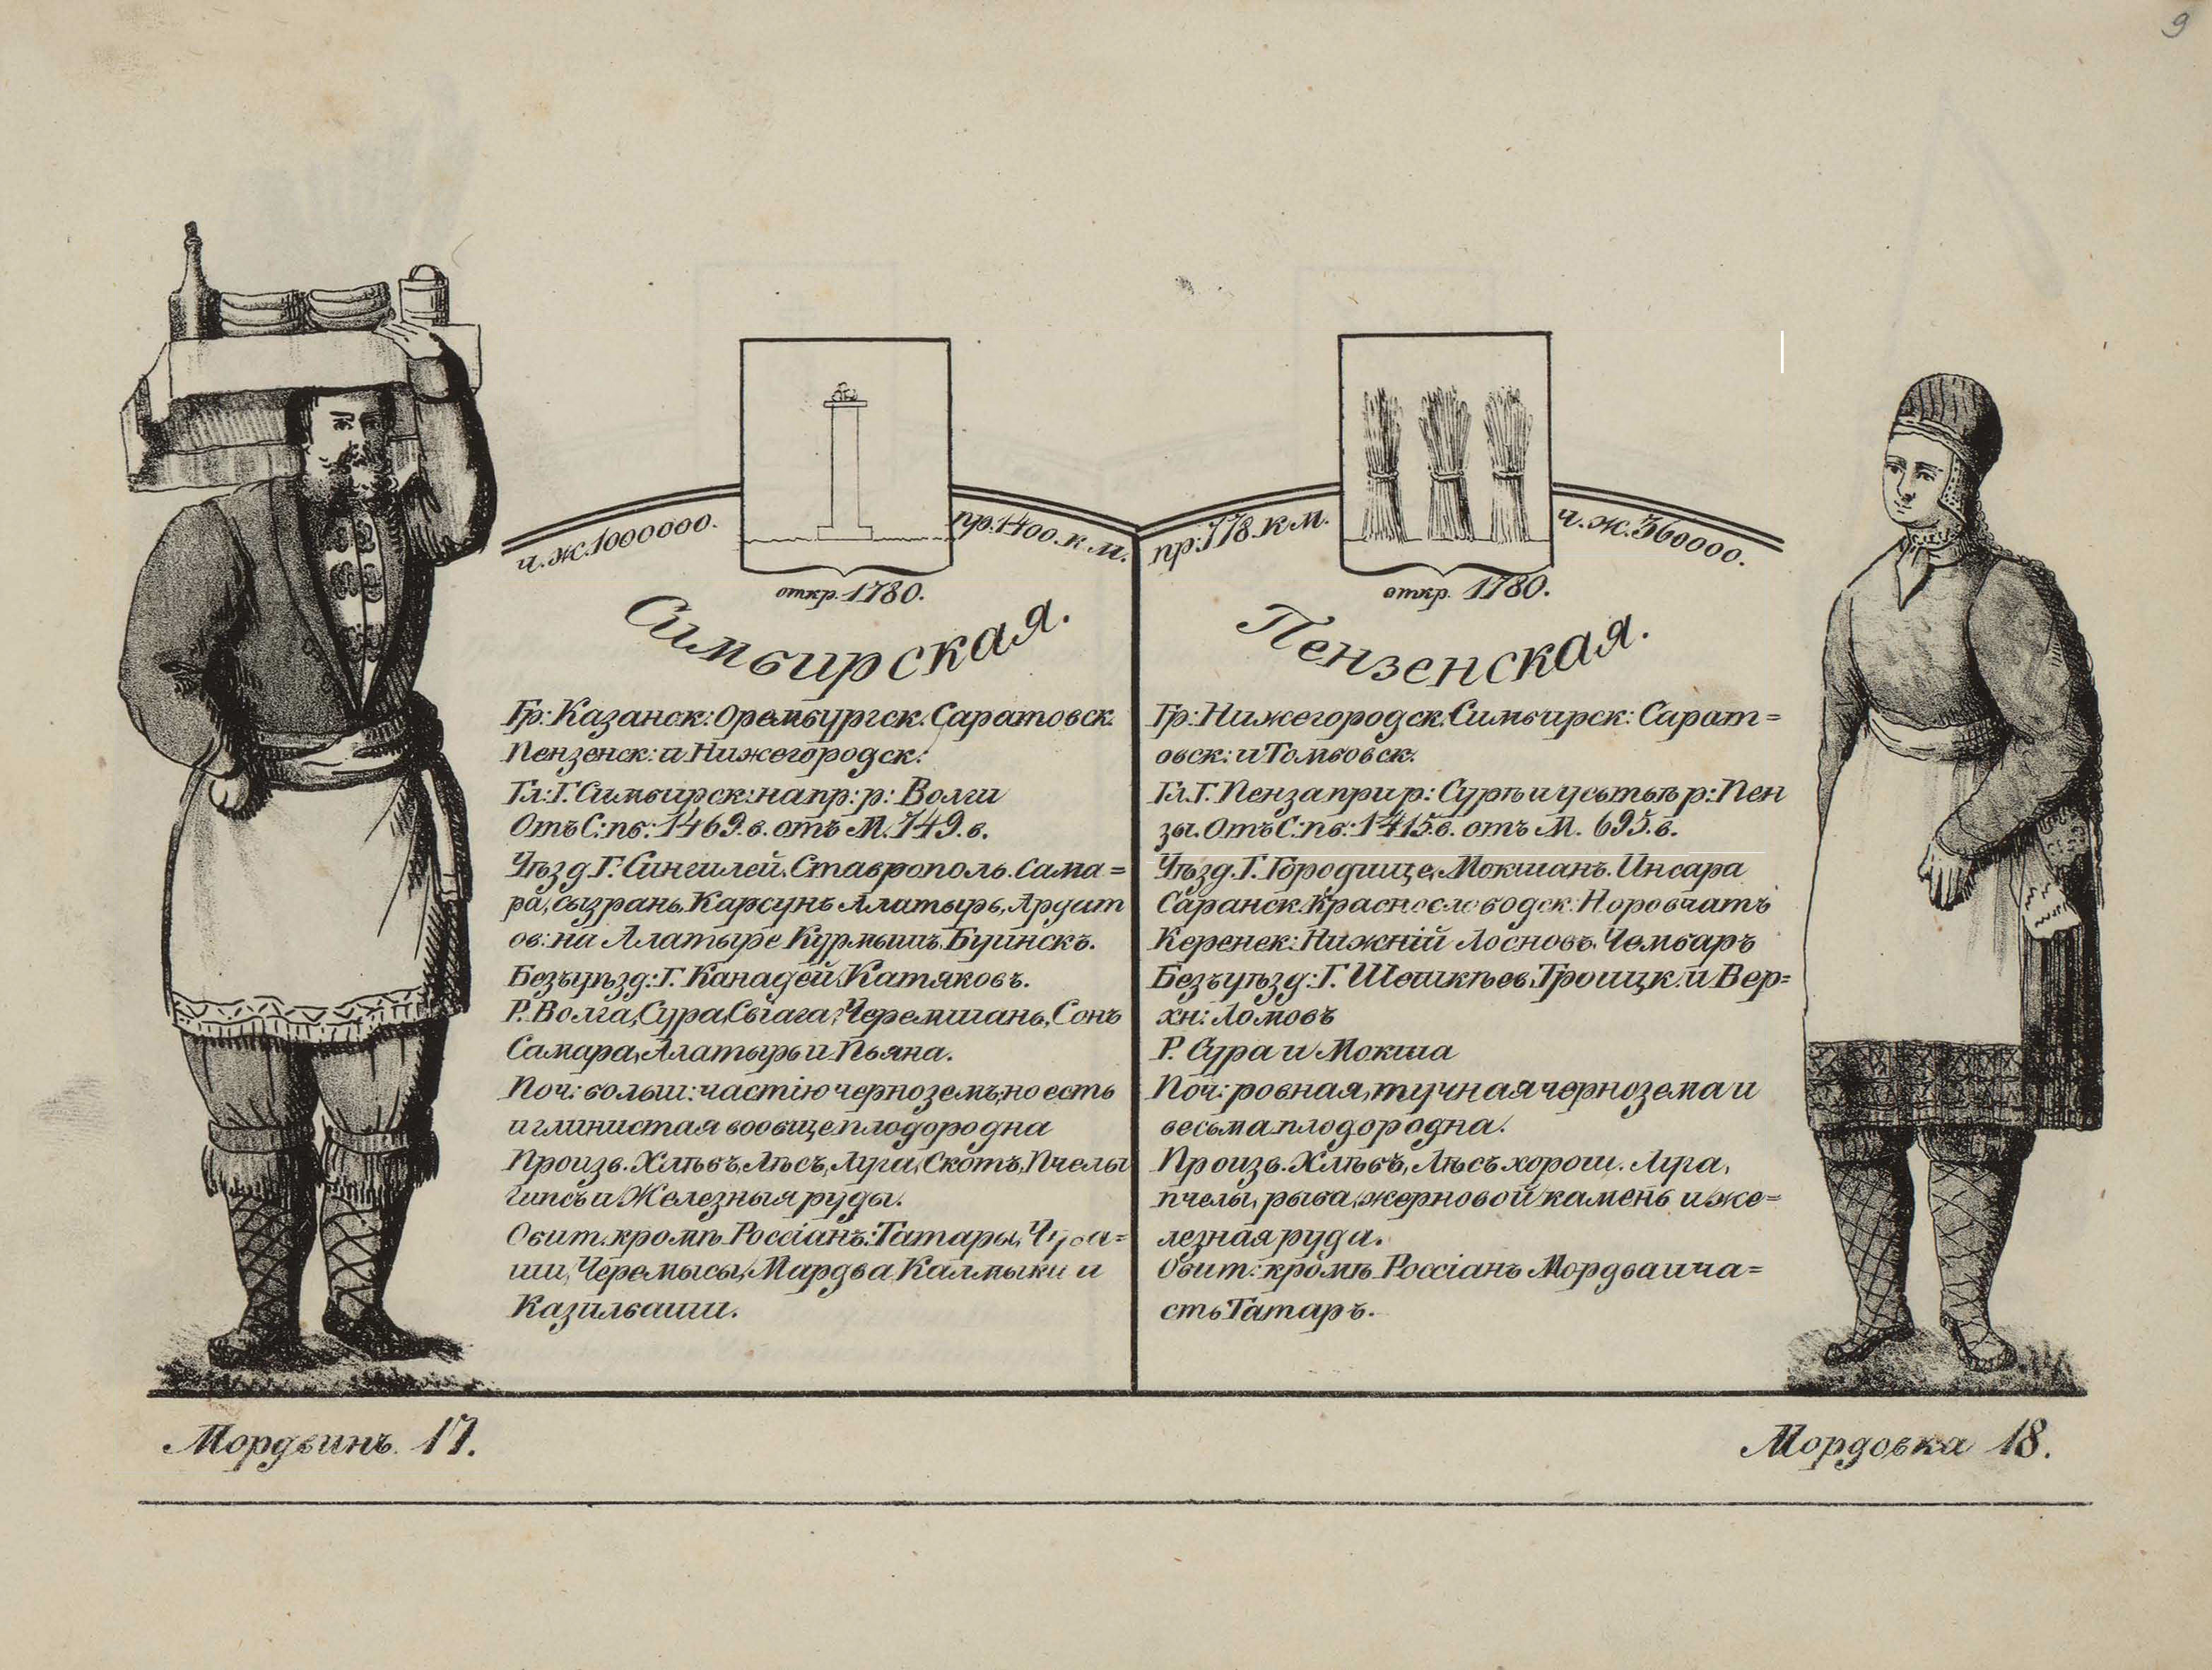 9
ч. ж. 1000000.
пр. 1400. к м.
откр. 1780.
Симбирская.
Гр: Казанск: Орембургск. Саратовск.
Пензенск: и Нижегородск:
Гл: Г. Симбирск: на пр: р: Волги
Отъ С: пб: 1469. в. отъ М. 749. в.
Уѣзд Г: Сингилей. Ставрополь. Сама=
ра, сызрань, Карсунъ Алатырь, Ардат
ов: на Алатыре Курмышъ. Буинскъ.
Безъуѣзд: Г. Канадей, Катяковъ.
Р. Волга, Сура, Свіага, Черемшань, Сонъ
Самара, Алатырь и Пьяна.
Поч: больш: частію черноземъ, но есть
и глинистая вообще плодородна
Произв. Хлѣбъ, Лѣсъ, Луга, Скотъ, Пчелы
гипсъ и Железныя руды.
Обит. кромѣ Россіанъ: Татары, Чува=
ши, Черемысы, Мардва, Калмыки и
Казилбаши.
пр: 778. к м.
ч. ж. 360000.
откр. 1780.
Пензенская.
Гр: Нижегородск. Симбирск: Сарат=
овск: и Томбовск.
Гл. Г. Пенза при р: Сурѣ и усьтьѣ р: Пен
зы. Отъ С: пб: 1415. в. отъ М. 695. в.
Уѣзд. Г. Городище, Мокшанъ. Инсара
Саранск. Краснослободск. Норовчатъ
Керенек: Нижній Лосновъ. Чембаръ
Безъуѣзд: Г. Шешкѣев, Троицк. и Вер=
хн: Ломовъ
Р. Сура и Мокша
Поч: ровная, тучная чернозема и
весьма плодородна.
Произв. Хлѣбъ, Лѣсъ хорош. Луга,
пчелы, рыба, жерновой камень и же=
лезная руда.
Обит: кромѣ Россіанъ Мордва и ча=
сть Татаръ.
Мордвинъ. 17.
Мордовка 18.